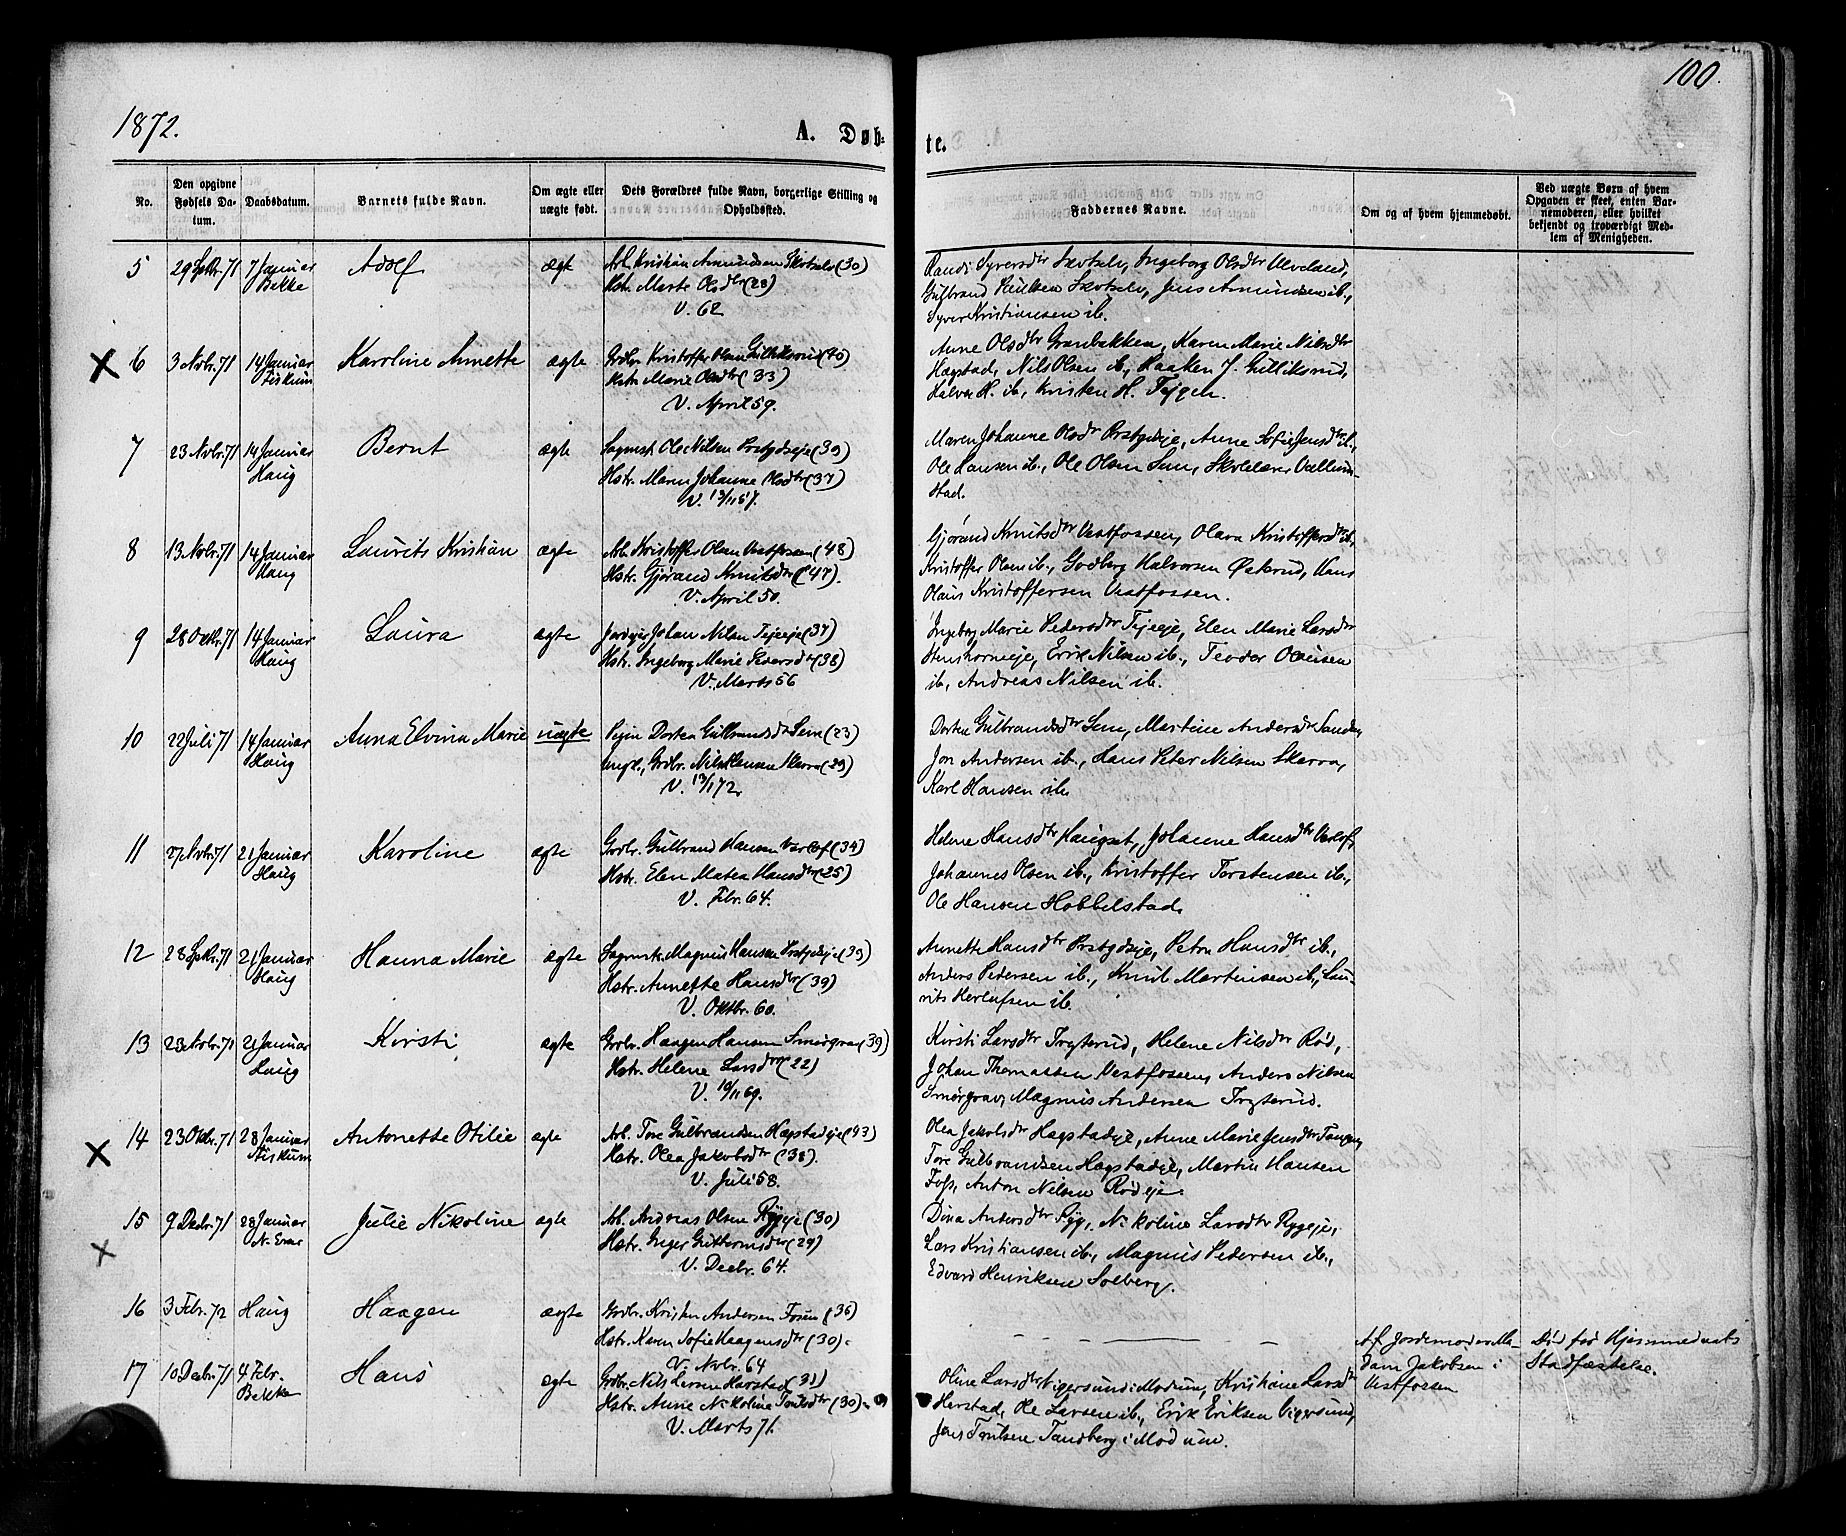 1872.
100.
A. Døb-
te.
No.
Den opgivne
Fødsels Da-
tum.
Daabsdatum.
Barnets fulde Navn.
Om ægte eller
uægte født.
Dets Forældres fulde Navn, borgerlige Stilling og
Opholdssted.
Faddernes Navne.
Om og af hvem hjemmedøbt.
Ved uægte Børn af hvem
Opgaven er skeet, enten Bar-
nemoderen, eller hvilket
bekjendt og troværdigt Med-
lem af Menigheden.
5
29 Septbr. 71
7 Januar
Bakke
Adolf
ægte
Arb. Kristian Amundsen Skotselv (30)
Hstr. Marte Olsdtr (28)
V. 62
Randi Syversdtr Skotselv, Ingeborg Olsdtr Ulveland,
Gulbrand Skotselv, Jens Amundsen ib.,
Syver Kristiansen ib.
6
3 Novbr. 71
14 Januar
Fiskum
Karoline Annette
ægte
Grdbr. Kristoffer Olsen Gulliksrud (40)
Hstr. Marie Olsdtr (33)
V. April 59.
Anne Olsdtr Granbakken, Karen Marie Nilsdtr
Hagstad, Nils Olsen ib., Haaken J. Gulliksrud,
Halvor H. ib., Kristen H. Teigen.
7
23 Novbr. 71
14 Januar
Haug
Bernt
ægte
Sagmst. Ole Nilsen Prstgdseje (39)
Hstr. Maren Johanne Olsdtr (37)
V. 13/11 57.
Maren Johanne Olsdtr Prstgdseje, Anne Sofie Jensdtr ib.,
Ole Hansen ib., Ole Olsen Sem, Skolelærer Vællum-
stad.
8
13 Novbr. 71
14 Januar
Haug
Laurits Kristian
ægte
Arb. Kristoffer Olsen Vestfossen (48)
Hstr. Gjørand Knutsdtr (47).
V. April 50.
Gjørand Knutsdtr Vestfossen, Olava Kristoffersdtr ib.,
Kristoffer Olsen ib., Godberg Halvorsen Østerud, Hans
Olaus Kristoffersen Vestfossen.
9
28 Oktbr. 71
14 Januar
Haug
Laura
ægte
Johan Nilsen Tejeeje (37)
Hstr. Ingeborg Marie Pedersdtr (38)
V. Marts 56
Ingeborg Marie Pedersdtr Tejeeje, Elen Marie Larsdtr
Stenshorneeje, Erik Nilsen ib., Teodor Olausen
ib., Andreas Nilsen ib.
10
22 Juli 71
14 Januar
Haug
Anna Elvina Marie
uægte
Pige Dortea Gulbrandsdtr Sem (23)
Ungk., Grdbr. Nils Klemsen Skarra (29)
V. 13/1 72.
Dortea Gulbrandsdtr Sem, Martine Andersdtr Sanden,
Jon Andersen ib., Hans Peter Nilsen Skarra,
Karl Hansen ib.
11
27 Novbr. 71
21 Januar
Haug
Karoline
ægte
Grdbr. Gulbrand Hansen Varlof (34)
Hstr. Elen Matea Hansdtr (25)
V. Febr. 64.
Helene Hansdtr Haugset, Johanne Hansdtr Varlof,
Johannes Olsen ib., Kristoffer Torstensen ib.,
Ole Hansen Hobbelstad.
12
28 Septbr. 71
21 Januar
Haug
Hanna Marie
ægte
Sagmst. Magnus Hansen Prstgdseje (39)
Hstr. Annette Hansdtr (39)
V. Oktbr. 60.
Annette Hansdtr Prstgdseje, Petra Hansdtr ib.,
Anders Pedersen ib., Knut Martinsen ib., Lau-
rits Herlufsen ib.
13
23 Novbr. 71
21 Januar
Haug
Kirsti
ægte
Grdbr. Haagen Hansen Smørgrav (39)
Hstr. Helene Larsdtr (22)
V. 10/11 69.
Kirsti Larsdtr Trygterud, Helene Nilsdtr Rød,
Johan Thomassen Vestfossen, Anders Nilsen
Smørgrav, Magnus Andersen Trygterud.
14
23 Oktbr. 71
28 Januar
Fiskum
Antonette Otilie
ægte
Arb. Tore Gulbrandsen Hagstadeje (43)
Hstr. Olea Jakobsdtr (38).
V. Juli 58.
Olea Jakobsdtr Hagstadeje, Anne Marie Jensdtr Tangen,
Tore Gulbrandsen Hagstadeje, Martin Hansen
Foss, Anton Nilsen Rødeje.
15
9 Decbr. 71
28 Januar
N. Eker
Julie Nikoline
ægte
Arb. Andreas Olsen Rygeje (30)
Hstr. Inger Guttormsdtr (29)
V. Decbr. 64.
Dina Andersdtr Ryg, Nikoline Larsdtr Rygeje,
Lars Kristiansen ib., Magnus Pedersen ib.,
Edvard Henriksen Solberg.
16
3 Febr. 72
Haug
Haagen
ægte
Grdbr. Kristen Andersen Fosen (36)
Hstr. Karen Sofie Haagensdtr (30).
V. Novbr. 64
Af Jordemoder Ma-
dam Jakobsen i
Vestfossen
Død før Hjemmedaabs
Stadfæstelse.
17
10 Decbr. 71
4 Febr.
Bakke
Hans
ægte
Grdbr. Nils Larsen Harstad (31)
Hstr. Anne Nikoline Toresdtr (30).
V. Marts 71.
Oline Larsdtr Vigersund i Modum, Kristine Larsdtr
Harstad, Ole Larsen ib., Erik Eriksen Vigersund,
Jens Trulsen Tandberg i Modum.